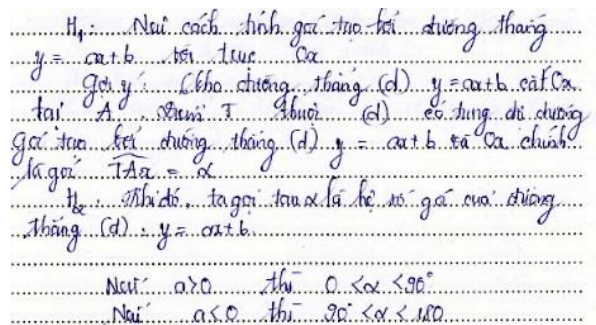 H₁: Nêu cách tính góc tạo bởi đường thẳng
y = ax+b với trục Ox
Gợi ý: Cho đường thẳng (d) y = ax+b cắt Ox
tại A. Điểm T thuộc (d) có tung độ dương
Góc tạo bởi đường thẳng (d) y = ax+b và Ox chính
là góc TAx = α
H₂. Khi đó, ta gọi tan α là hệ số góc của đường
thẳng (d). y = ax+b.
Nếu a>0 thì 0 < α < 90°
Nếu a<0 thì 90° < α < 180